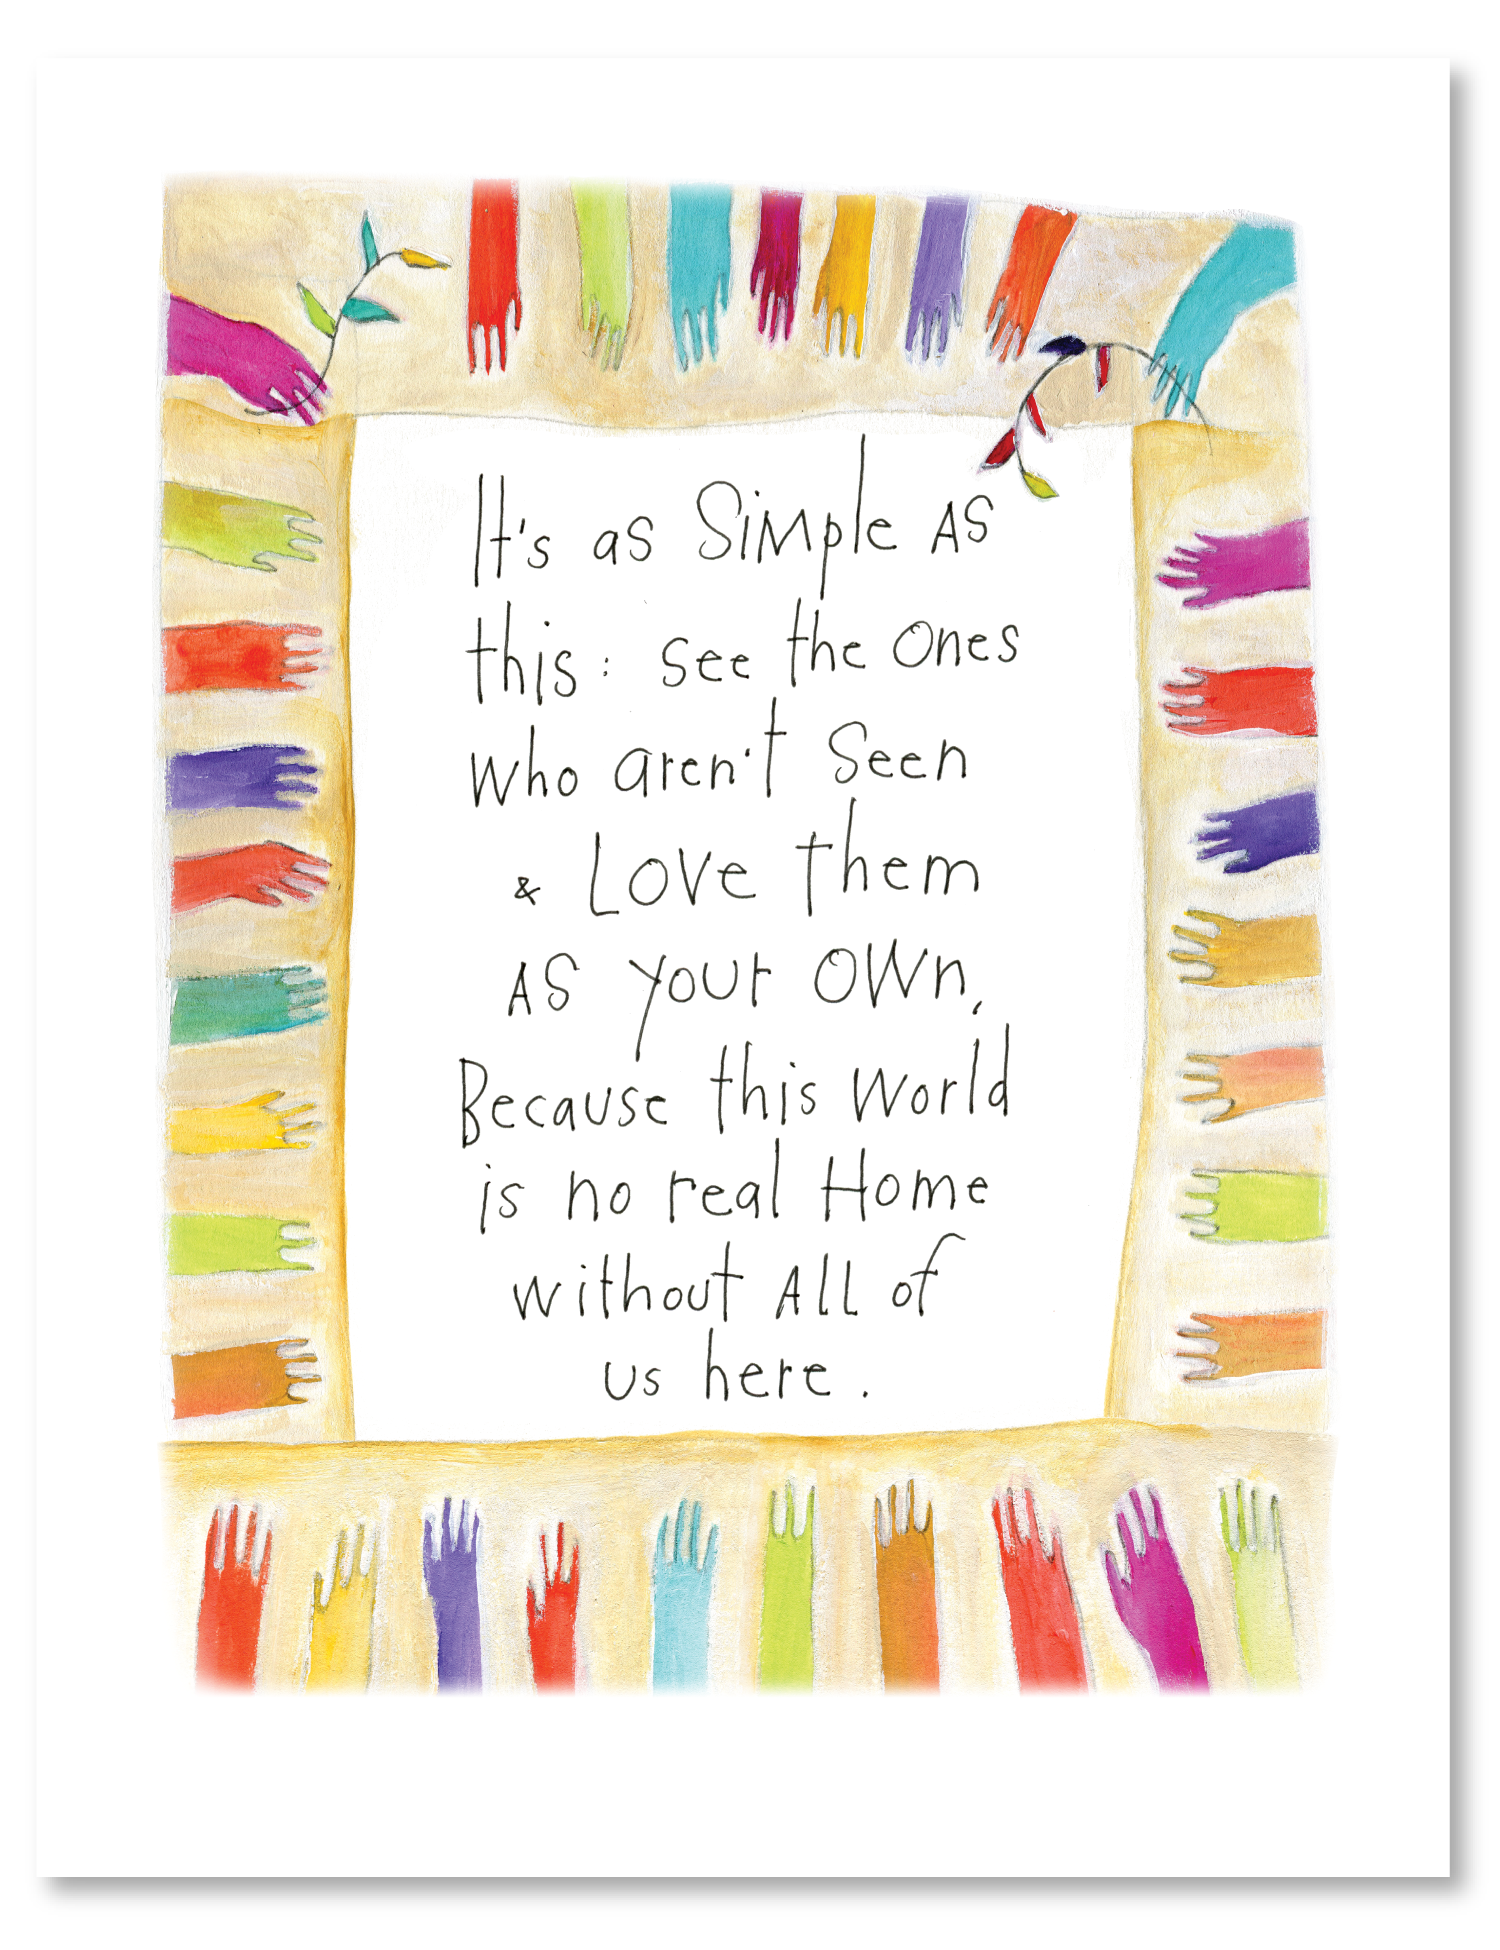 It's as Simple AS
this: see the ones
who aren't seen
& Love them
AS your own,
Because this world
is no real Home
without All of
us here.